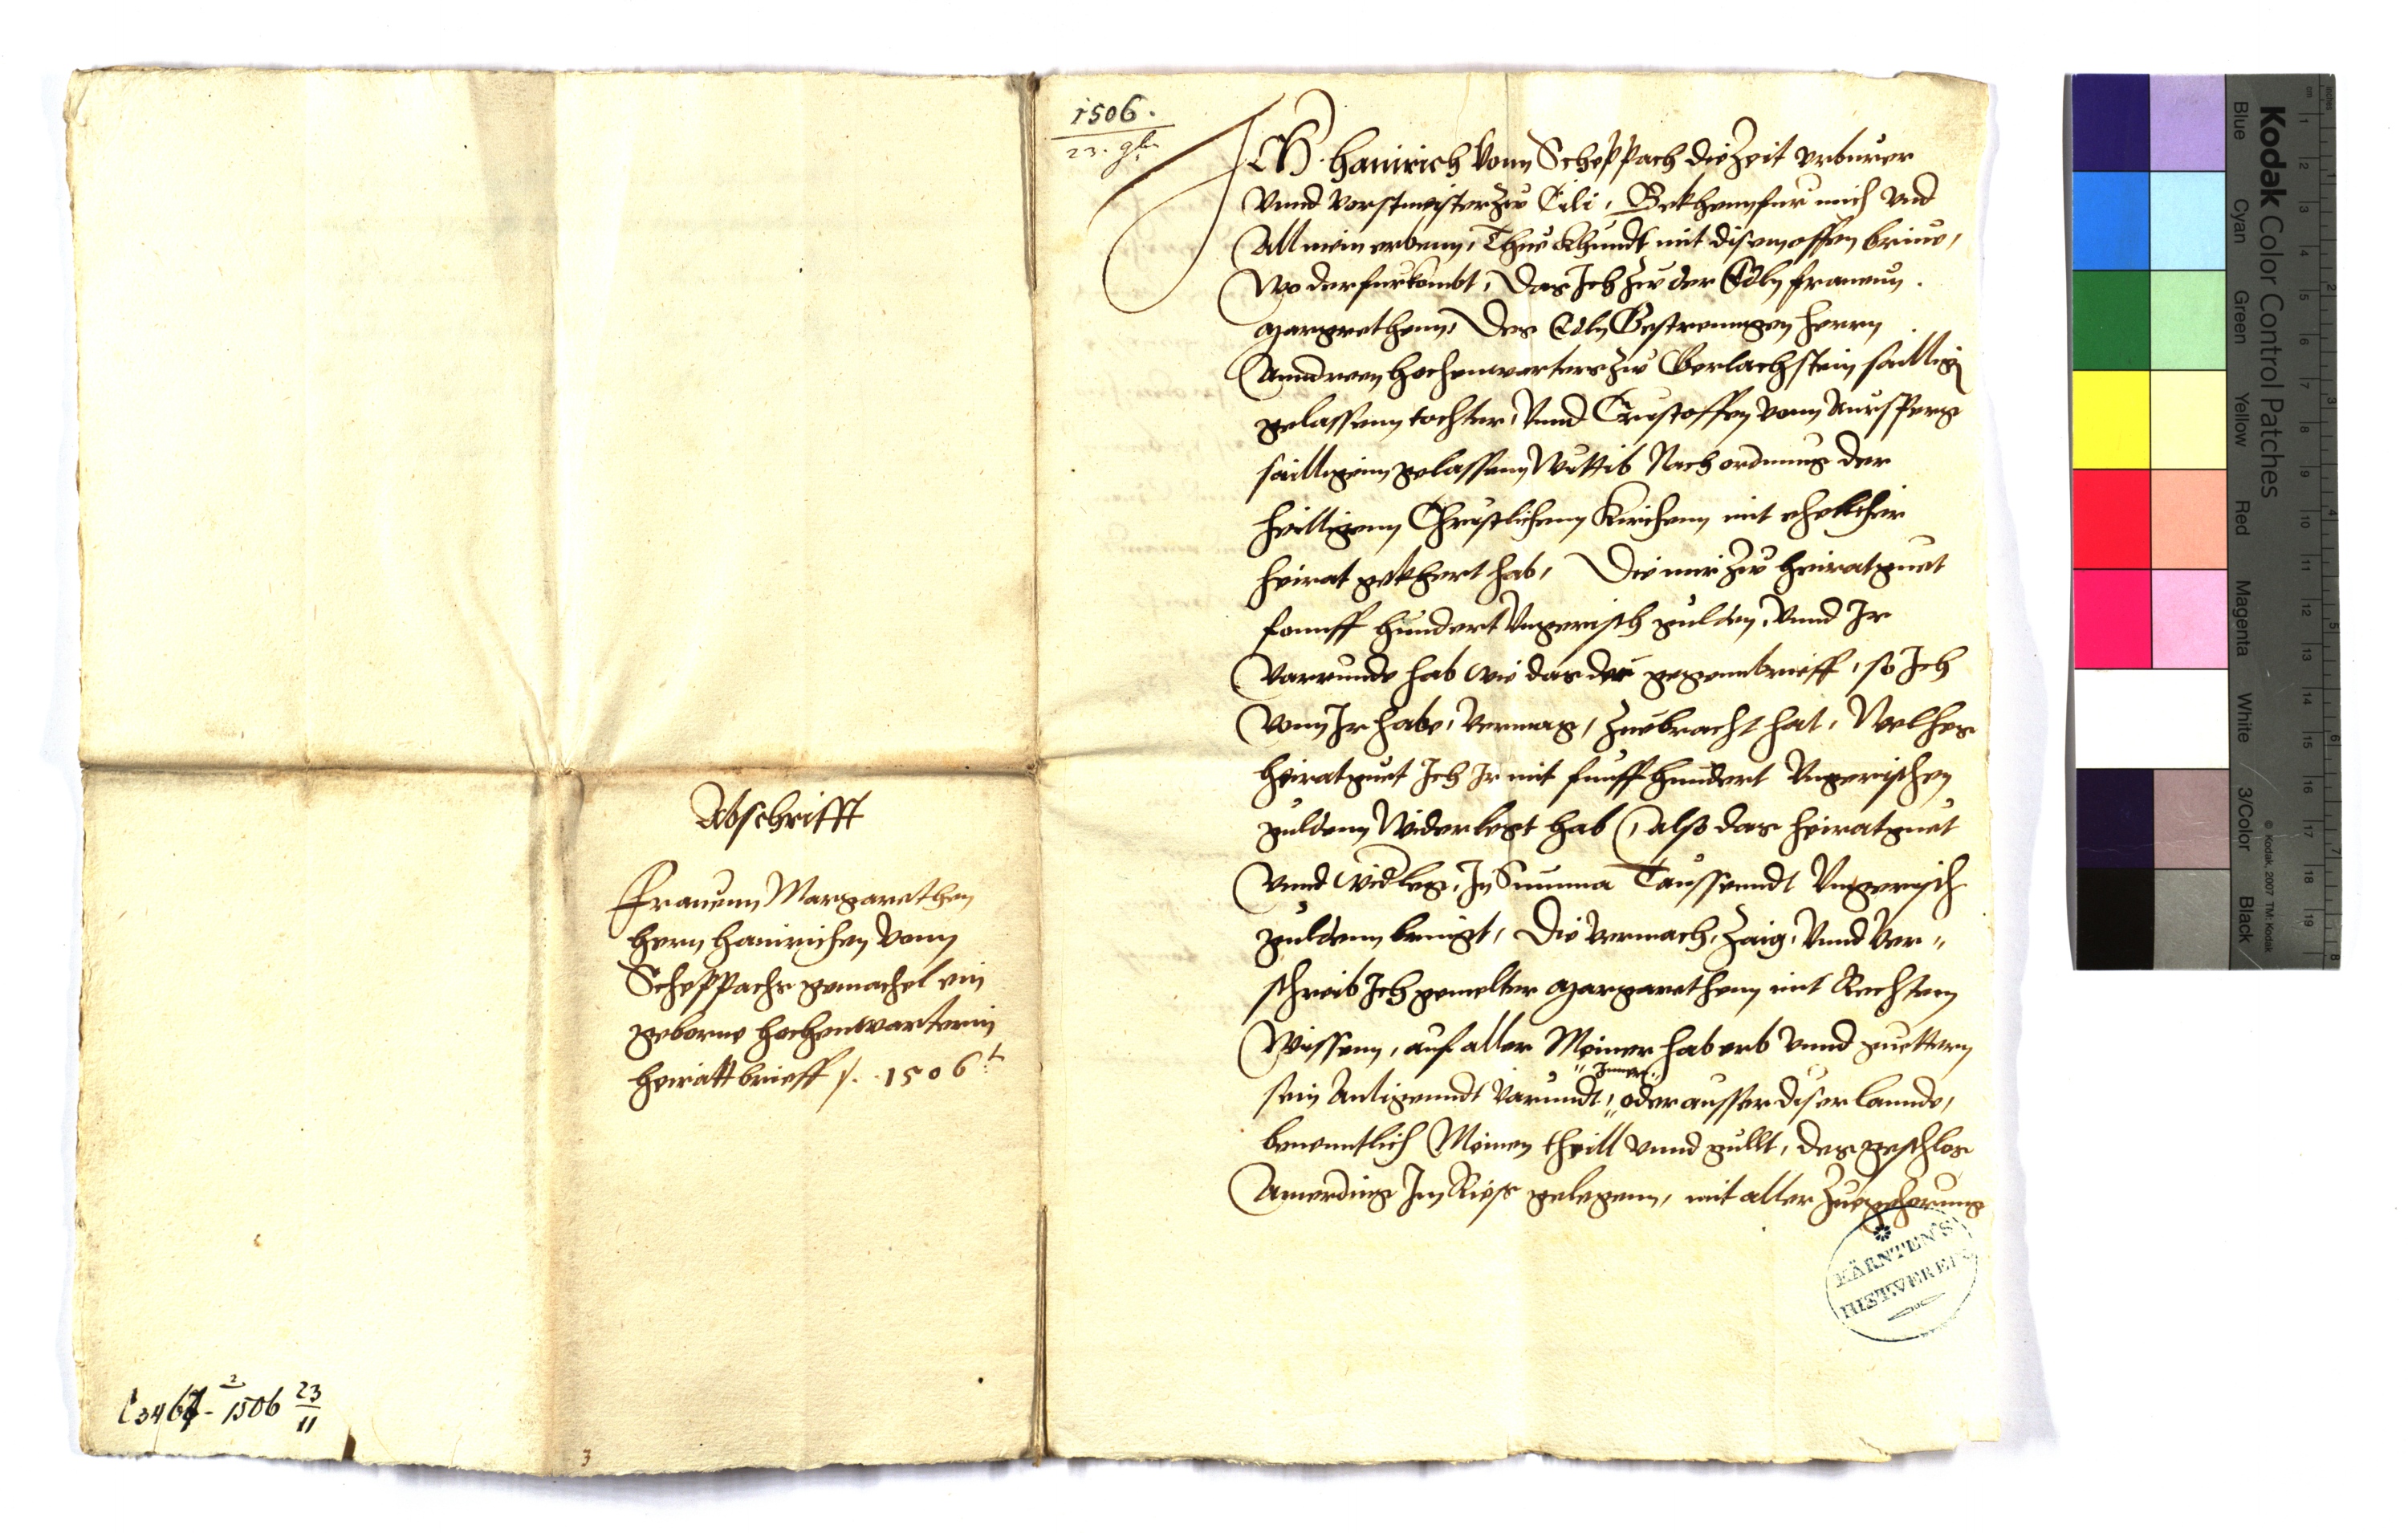 Abschrifft
Frauenn Margarethen
hern hainrichen vonn
Scheppachs gemachel ein
geborne hochenwarterin
heiratt brieff /. 1506 t
C 3467 - 1506 23/11
2
3
1506.
23. 9br.
ICH hainrich vonn Scheppach die Zeit vrburer
vnnd vorstmeister zw Cili, Bekhenn fur mich vnd
All mein erbenn, Thue khundt mit disem offen brieue,
wo der furkombt, Das Ich zw der Edln frauenn
Margrethenn, Des Edln Gestrenngen herrn
Anndreen hochenwarters zw Gerlachstein sailligen
gelassenn tochter, vnnd Cristoffen vonn Aursperg
sailligenn gelassenn Wittib Nach ordnung der
heilligenn Christlichenn Kirchenn mit ehelicher
heirat gekhert hab, Die mir zw heiratguet
fonnff hundert Vngerisch gulden, vnnd Ir
varrunde hab wie das der gegennbrieff, so Ich
vonn Ir habe, vermag, zuebracht hat, Welhes
heiratguet Ich Ir mit funff hundert Vngerischen
guldenn Widerlegt hab, also das heiratguet
vnnd widleg, In Summa Taussenndt Vngerisch
guldenn bringt, Die vermach, Zaig, vnnd ver„
schreib Ich gemelter Margarethenn mit Rechtem
Wissenn, auf aller Meiner hab erb vnnd guettern
„Inner„
sein Anligenndt varundt, „ oder ausser diser lannde,
benenntlich Meinen theill vnnd gullt, des geschlos
Amerding Im Riess gelegenn, mit aller Zuegehorung
KÄRNTEN'S
HIST. VEREIN
Kodak Color Control Patches
Blue Cyan Green Yellow Red Magenta White 3/Color Black
© Kodak, 2007 TM: Kodak
inches
cm 1 2 3 4 5 6 7 8 9 10 11 12 13 14 15 16 17 18 19
1 2 3 4 5 6 7 8